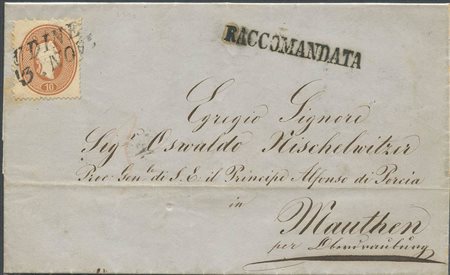 UDINE
13. NO
10
RACCOMANDATA
Egregio Signore
Sigr. Oswaldo Nischelwitzer
Proc. Genle. de S. E. il Principe Alfonso di Porcia
in
Mauthen
per Oberdrauburg